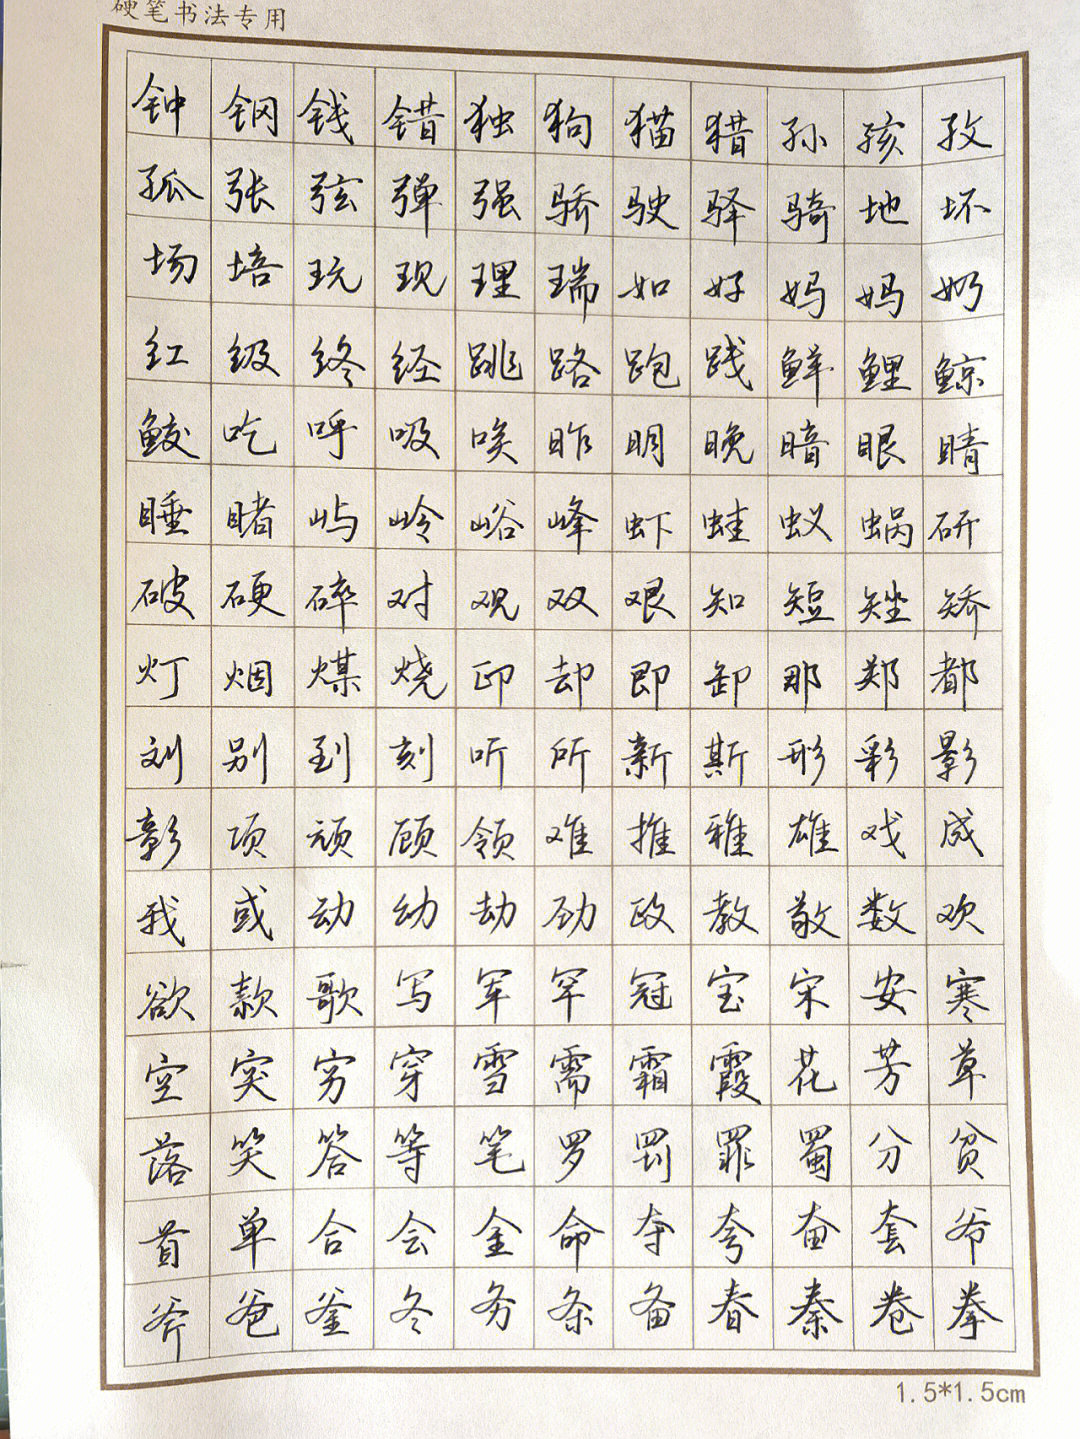 硬笔书法专用
钟钢钱错独狗猫猎孙孩孜
孤张弦弹强骄驶驿骑地坏
场培玩现理瑞如好妈妈奶
红级终经跳路跑践鲜鲤鲸
鲛吃呼吸唉昨明晚暗眼睛
睡睹屿岭峪峰虾蛙蚁蜗研
破硬碎对观双艰知短矬矫
灯烟煤烧印却即卸那郑都
刘别到刻听所新斯形彩影
彰项顽顾领难推雅雄戏成
我或动幼劫劲政教敬数欢
欲款歌写军罕冠宝宋安寒
空突穷穿雪需霜霞花芳草
落笑答等笔罗罚罪蜀分贫
首单合会金命夺夸奋套爷
斧爸釜冬务条备春秦卷拳
1.5*1.5cm